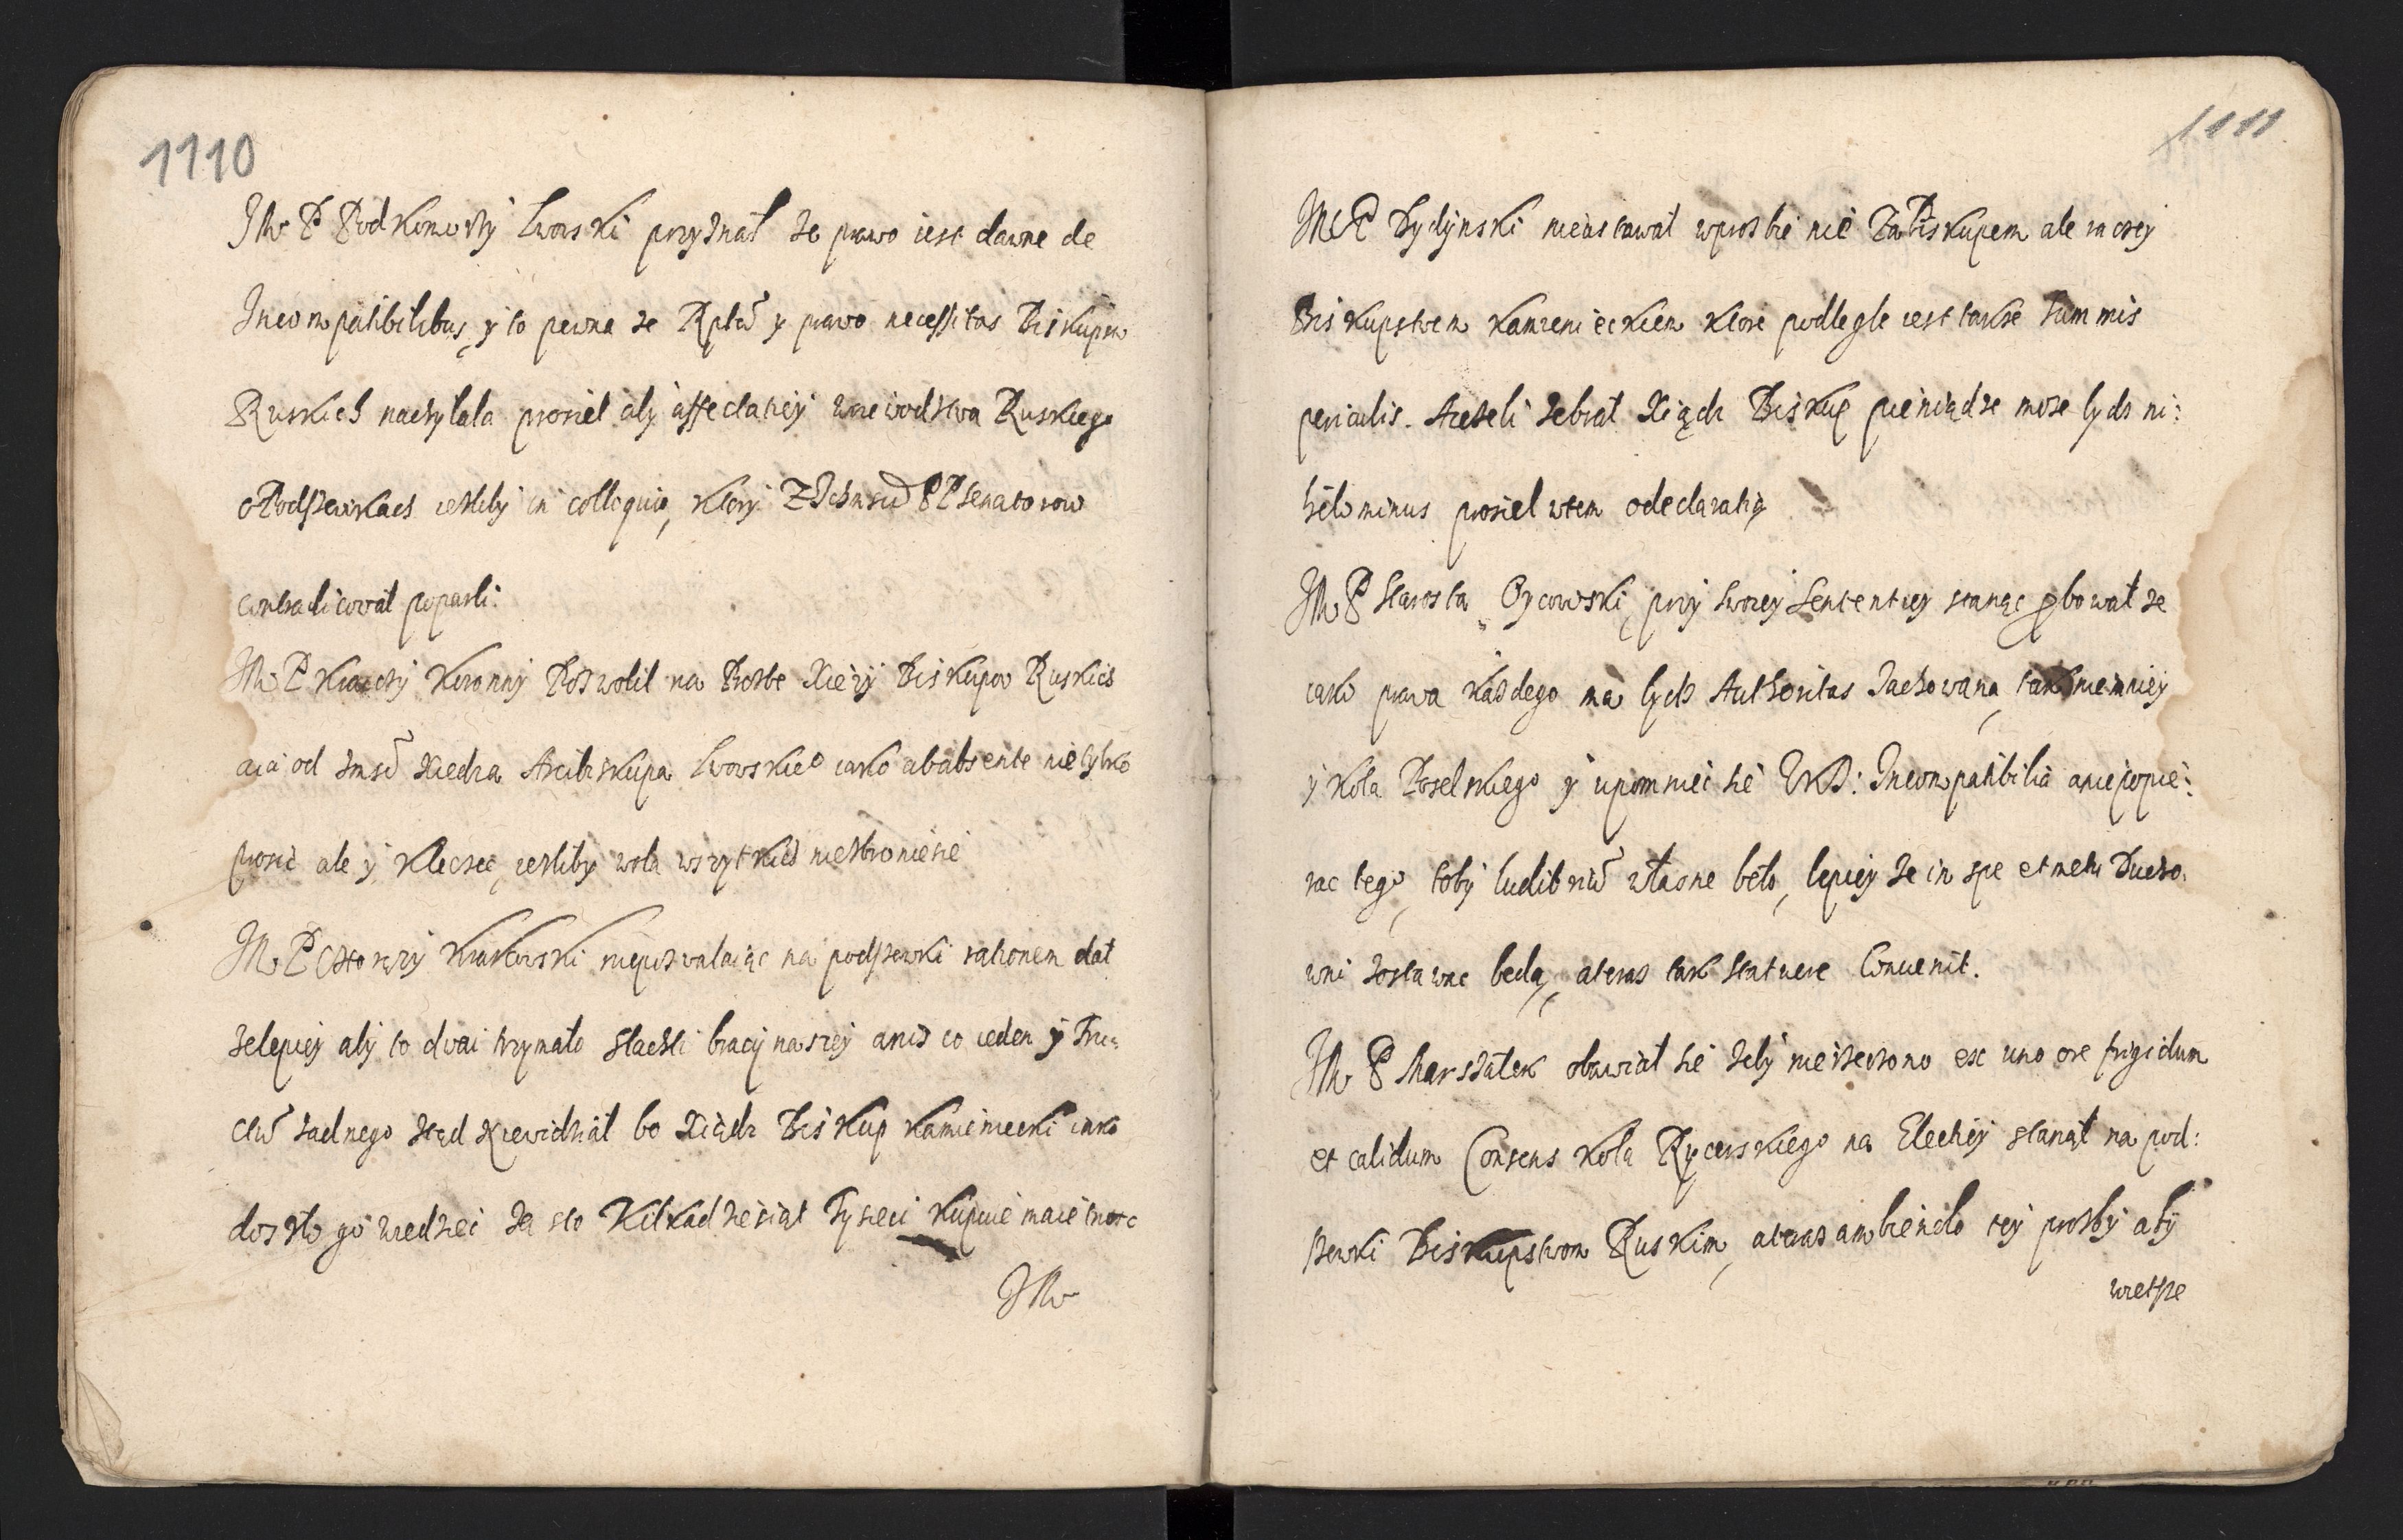 1110
JMc P Podkomorzy Lwowski przyznał ze prawo iest dawne de
Incompatibilibus, y to pewna ze Rptw̃ y prawo necessitas Biskupow
Ruskich nachylala prosiel aby affectatiey woiewodztwa Ruskiego
o Podszewkach iesliby in colloquio, ktory z Ichmsciw̃ PP Senatorow
contradicował poparli:
JMc P Kraiczy Koronny Pozwolil na Prosbe Xięzy Biskupow Ruskich
a ia od Jmsci Xiedza Arcibiskupa Lwowskieo iako ab absente nie tylko
prosic ale y kleczec, iesliby wola wszytkich niezbroniesie
JMc P Chorązy Krakowski niepozwalaiąc na podszewki rationem dał
ze lepiey aby to dwai trzymało Slachti braciy naszey aniz co ieden y Fru:
ctw̃ zadnego ztąd niewidział bo Xiądz Biskup Kamieniecki iako
doszło go wiedziec za sto Kilkadziesiąt Tysieci Kupuie maietnosc
JMc
1111
JMc P Dydynski nieustawał wprosbie nie Za Biskupem ale raczey
Biskupstwem Kamienieckiem Ktore podlegle iest takze summis
periculis. A iezeli zebrał Xiądz Biskup pieniądze moze bydz ni:
hilo minus prosiel wtem o declaratią
JMc P Starosta Oycowski, przy swoiey Sententiey stanąc probował ze
iako prawa kazdego ma bydz Authoritas Zachowana, tak niemniey
y Kola Poselskiego y upomniec sie WXD: Incompatibilia a niepopie:
rac tego, toby ludibriw̃ własne beło, lepiey ze in spe et metu Ducho
wni zostawac będą, a teraz tak statuere Convenit.
JMc P Marszałek obawiał sie zeby nierzeczono ex uno ore frigidum
et calidum Consens Kola Rycerskiego na Electiey stanął na pod:
szewki Biskupstwom Ruskim, a teraz ambiendo tey prosby aby
wietsze